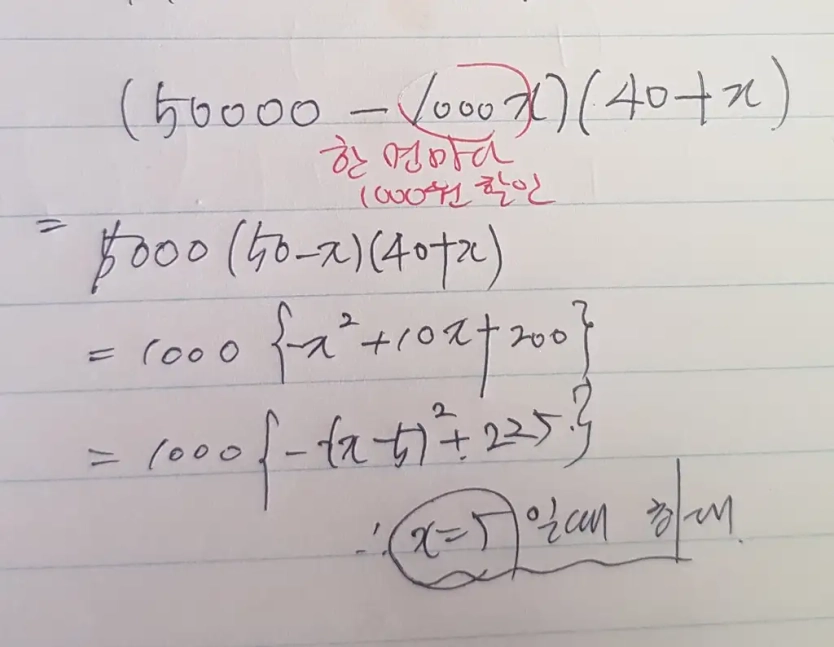 (50000 - 1000x)(40+x)
한 명마다
1000원 할인
=
1000(50-x)(40+x)
= 1000{-x²+10x+200}
= 1000{-(x-5)²+225}
∴ x=5 일때 최대.